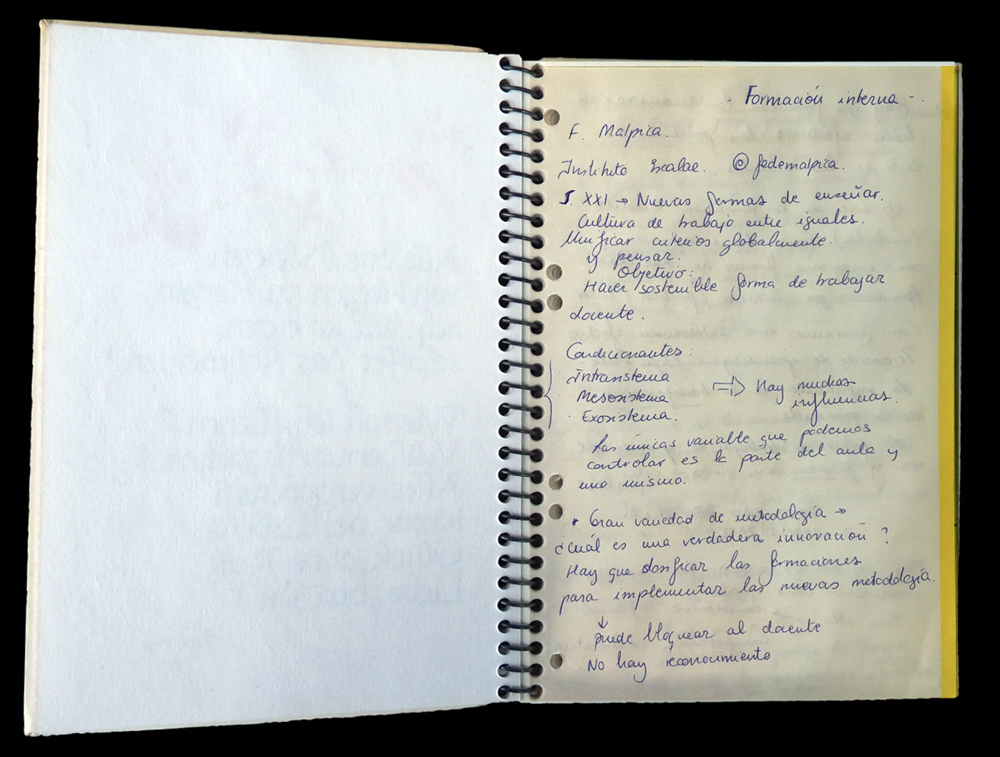 - Formación interna -
F. Malpica.
Instituto Escalae. @fedemalpica.
S. XXI → Nuevas formas de enseñar.
Cultura de trabajo entre iguales.
Unificar criterios globalmente
y pensar.
Objetivo:
Hacer sostenible forma de trabajar
docente.
Condicionantes:
Intrasistema
Mesosistema ⇒ Hay muchas
Exosistema. influencias.
Las únicas variable que podemos
controlar es la parte del aula y
uno mismo.
• Gran variedad de metodología →
¿cuál es una verdadera innovación?
Hay que dosificar las formaciones
para implementar las nuevas metodología.
↓
puede bloquear al docente
No hay reconocimiento